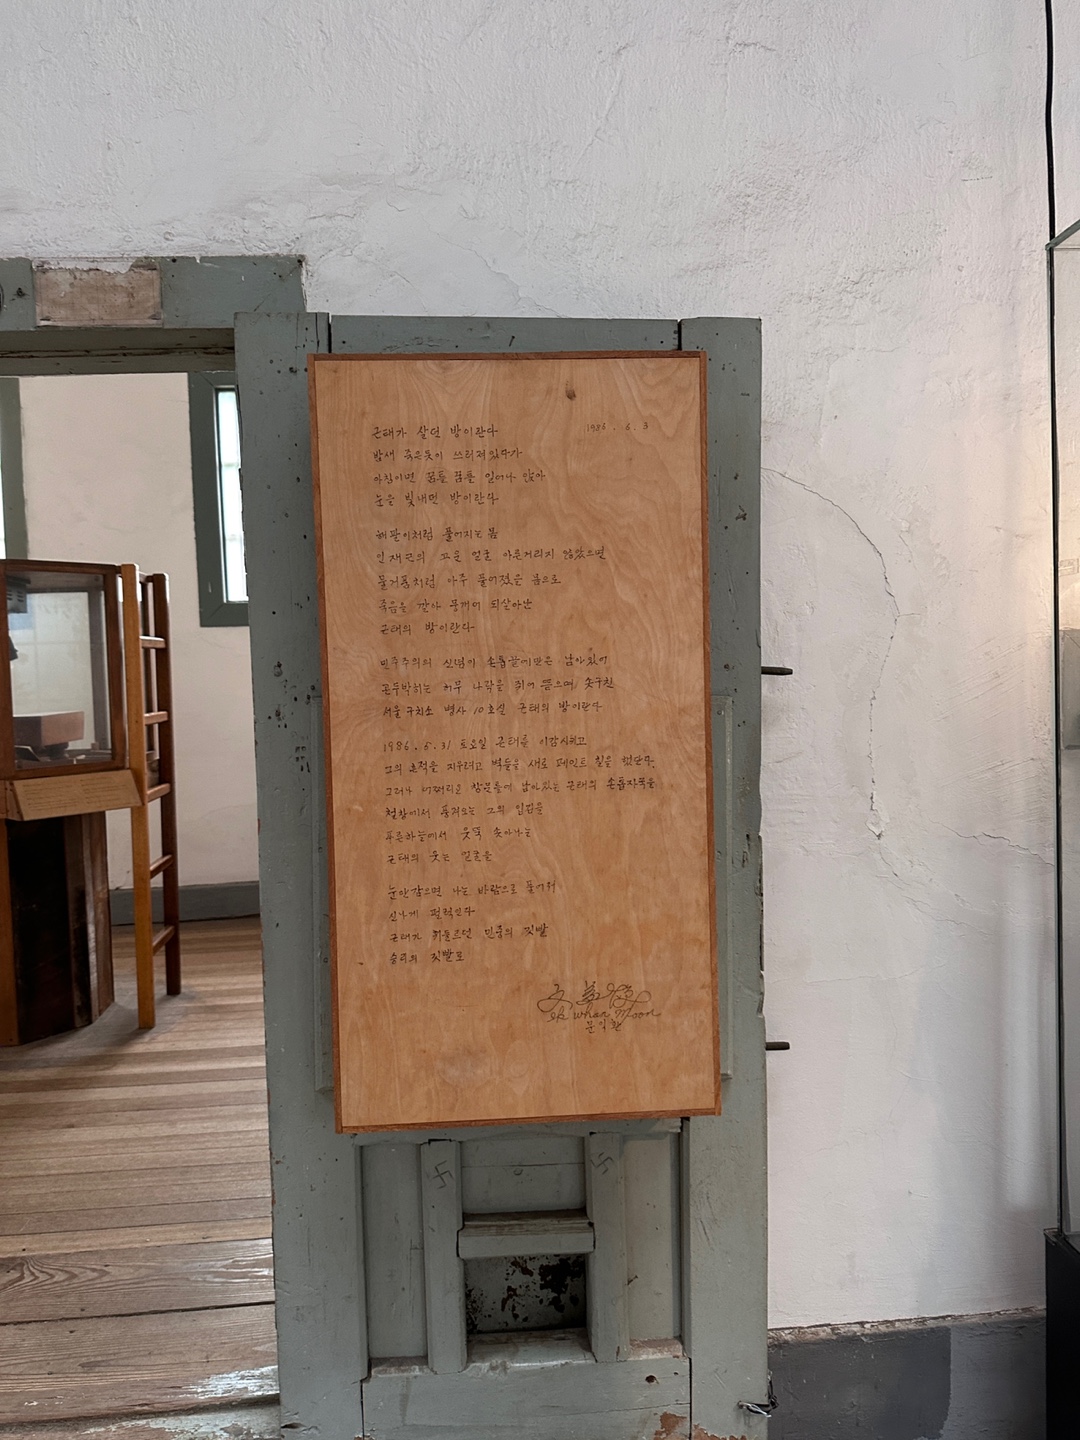 근태가 살던 방이란다
1986. 6. 3
밤새 죽은듯이 쓰러져 있다가
아침이면 꿈틀 꿈틀 일어나 앉아
눈을 빛내던 방이란다
해팔이처럼 풀어지는 몸
인재근의 고운 얼굴 아른거리지 않았으면
물거품처럼 아주 풀어졌을 몸으로
죽음을 같아 뭉개며 되살아난
근태의 방이란다
민주주의의 신념이 손톱끝에만은 남아있어
곤두박히는 허무 나락을 쥐어 뜯으며 솟구친
서울구치소 병사 10호실 근태의 방이란다
1986. 5. 31 토요일 근태를 이감시키고
그의 흔적을 지우려고 벽들을 새로 페인트 칠을 했단다
그러나 창문틀에 남아있는 근태의 손톱자국을
철창에서 풍겨오는 그의 입김을
푸른하늘에서 웃뚝 솟아나는
근태의 웃는 얼굴을
눈만감으면 나는 바람으로 풀어져
신나게 펄럭인다
근태가 휘둘르던 민중의 깃발
승리의 깃발로
文益煥
Ik Whan Moon
문익환